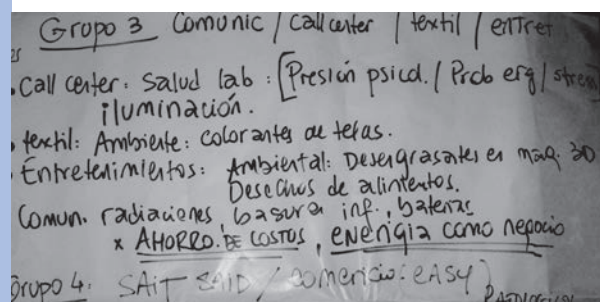 Grupo 3 Comunic / Callcenter / textil / entret
• Call center: Salud lab: [Presión psicol. / Prob erg / stress]
iluminación.
• textil: Ambiente: colorantes de telas.
• Entretenimientos: Ambiental: Desengrasantes en maq. 3D
Desechos de alimentos.
Comun. radiaciones, basura inf., baterias
x AHORRO DE COSTOS, eNeRgia como negocio
Grupo 4: SAIT / comercio: eASy